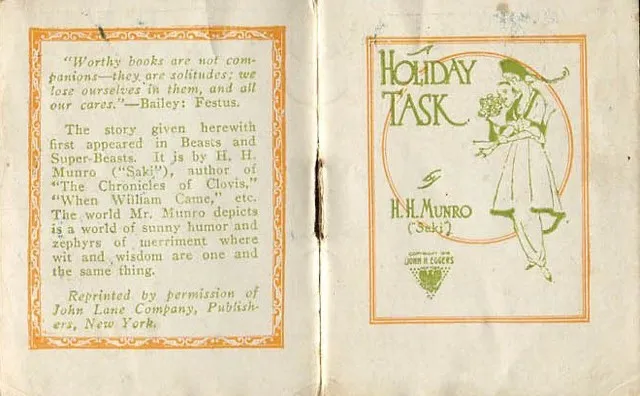 "Worthy books are not com-
panions—they are solitudes; we
lose ourselves in them, and all
our cares."—Bailey: Festus.
The story given herewith
first appeared in Beasts and
Super-Beasts. It is by H. H.
Munro ("Saki"), author of
"The Chronicles of Clovis,"
"When William Came," etc.
The world Mr. Munro depicts
is a world of sunny humor and
zephyrs of merriment where
wit and wisdom are one and
the same thing.
Reprinted by permission of
John Lane Company, Publish-
ers, New York.
A
HOLIDAY
TASK
by
H. H. MUNRO
("Saki")
COPYRIGHT
JOHN H. EGGERS